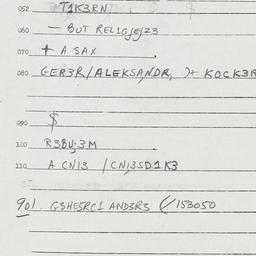 052 T1K3RN
060 — BUT REL1GJEJ23
070 + A SAX .
080 GER3R/ALEKSA,NDR, )+ KOCK3R
090 $
100 R3BU;3M .
110 A CN13 /CN;3SD1K3
901 GSHE5RC1 AND3R3 (/153050